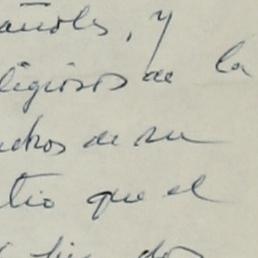 añoles, y
ligiosos de la
uchos de su
tio que el